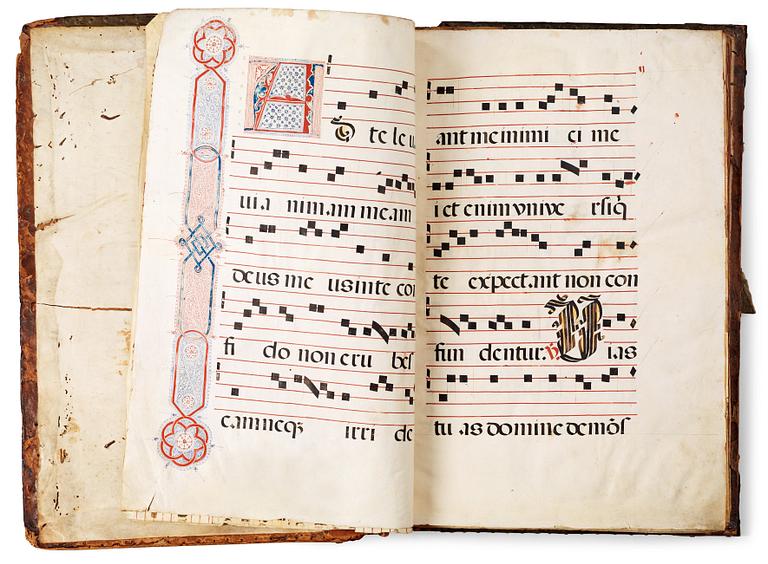 A
D te leu
ui a nim.am me.am
deus me us in te con
fi do non eru bes
c.am neqz irri de
ant me inimi ci me
i et enim vnive rsi q̄
te expect.ant non con
fun dentur. ℣ Vi.as
tu .as domine demōs